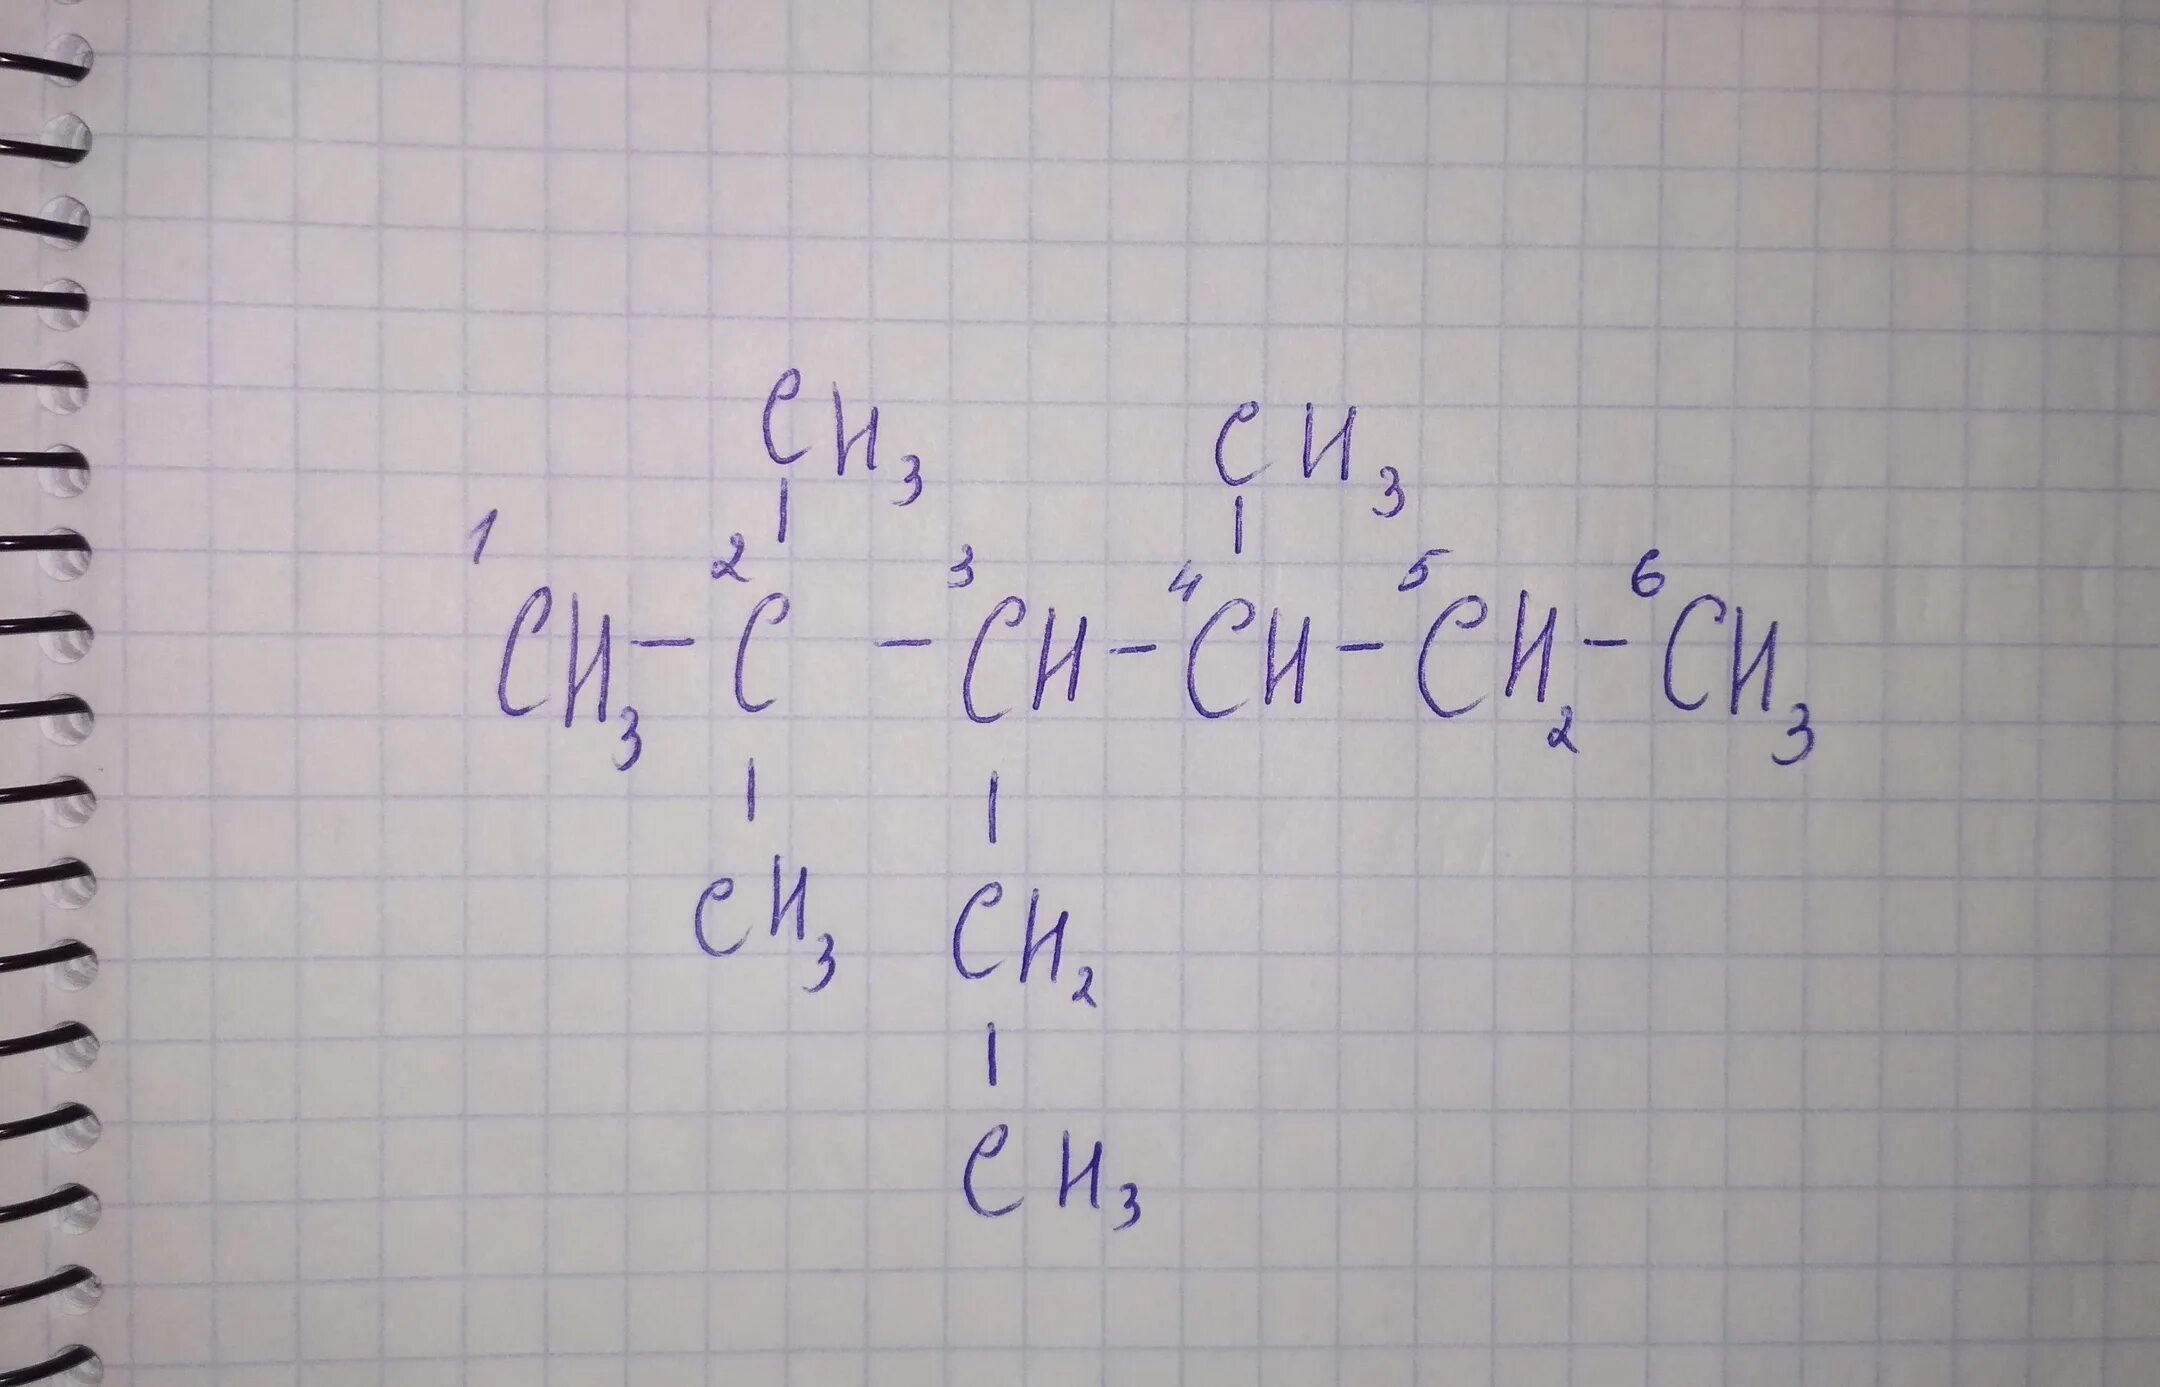 CH3 CH3
1 2 3 4 5 6
CH3 - C - CH - CH - CH2 - CH3
CH3 CH2
CH3